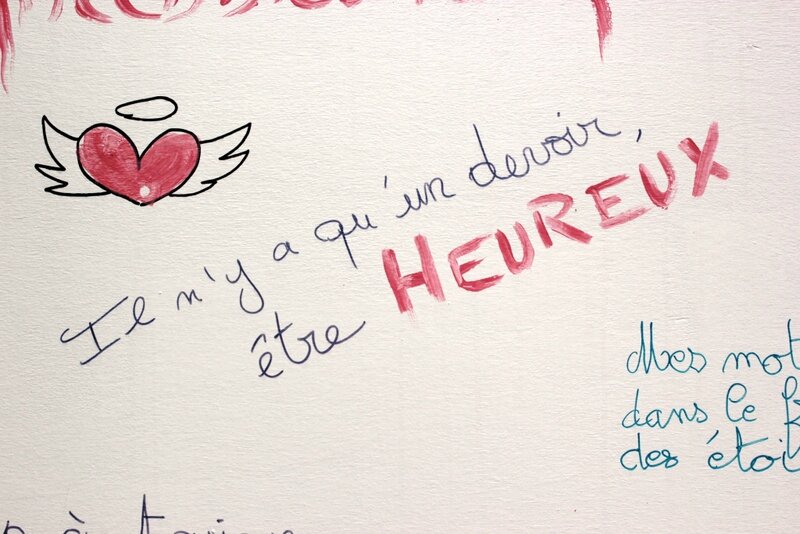 Il n'y a qu'un devoir,
être HEUREUX
Mes mot
dans le
des étoi